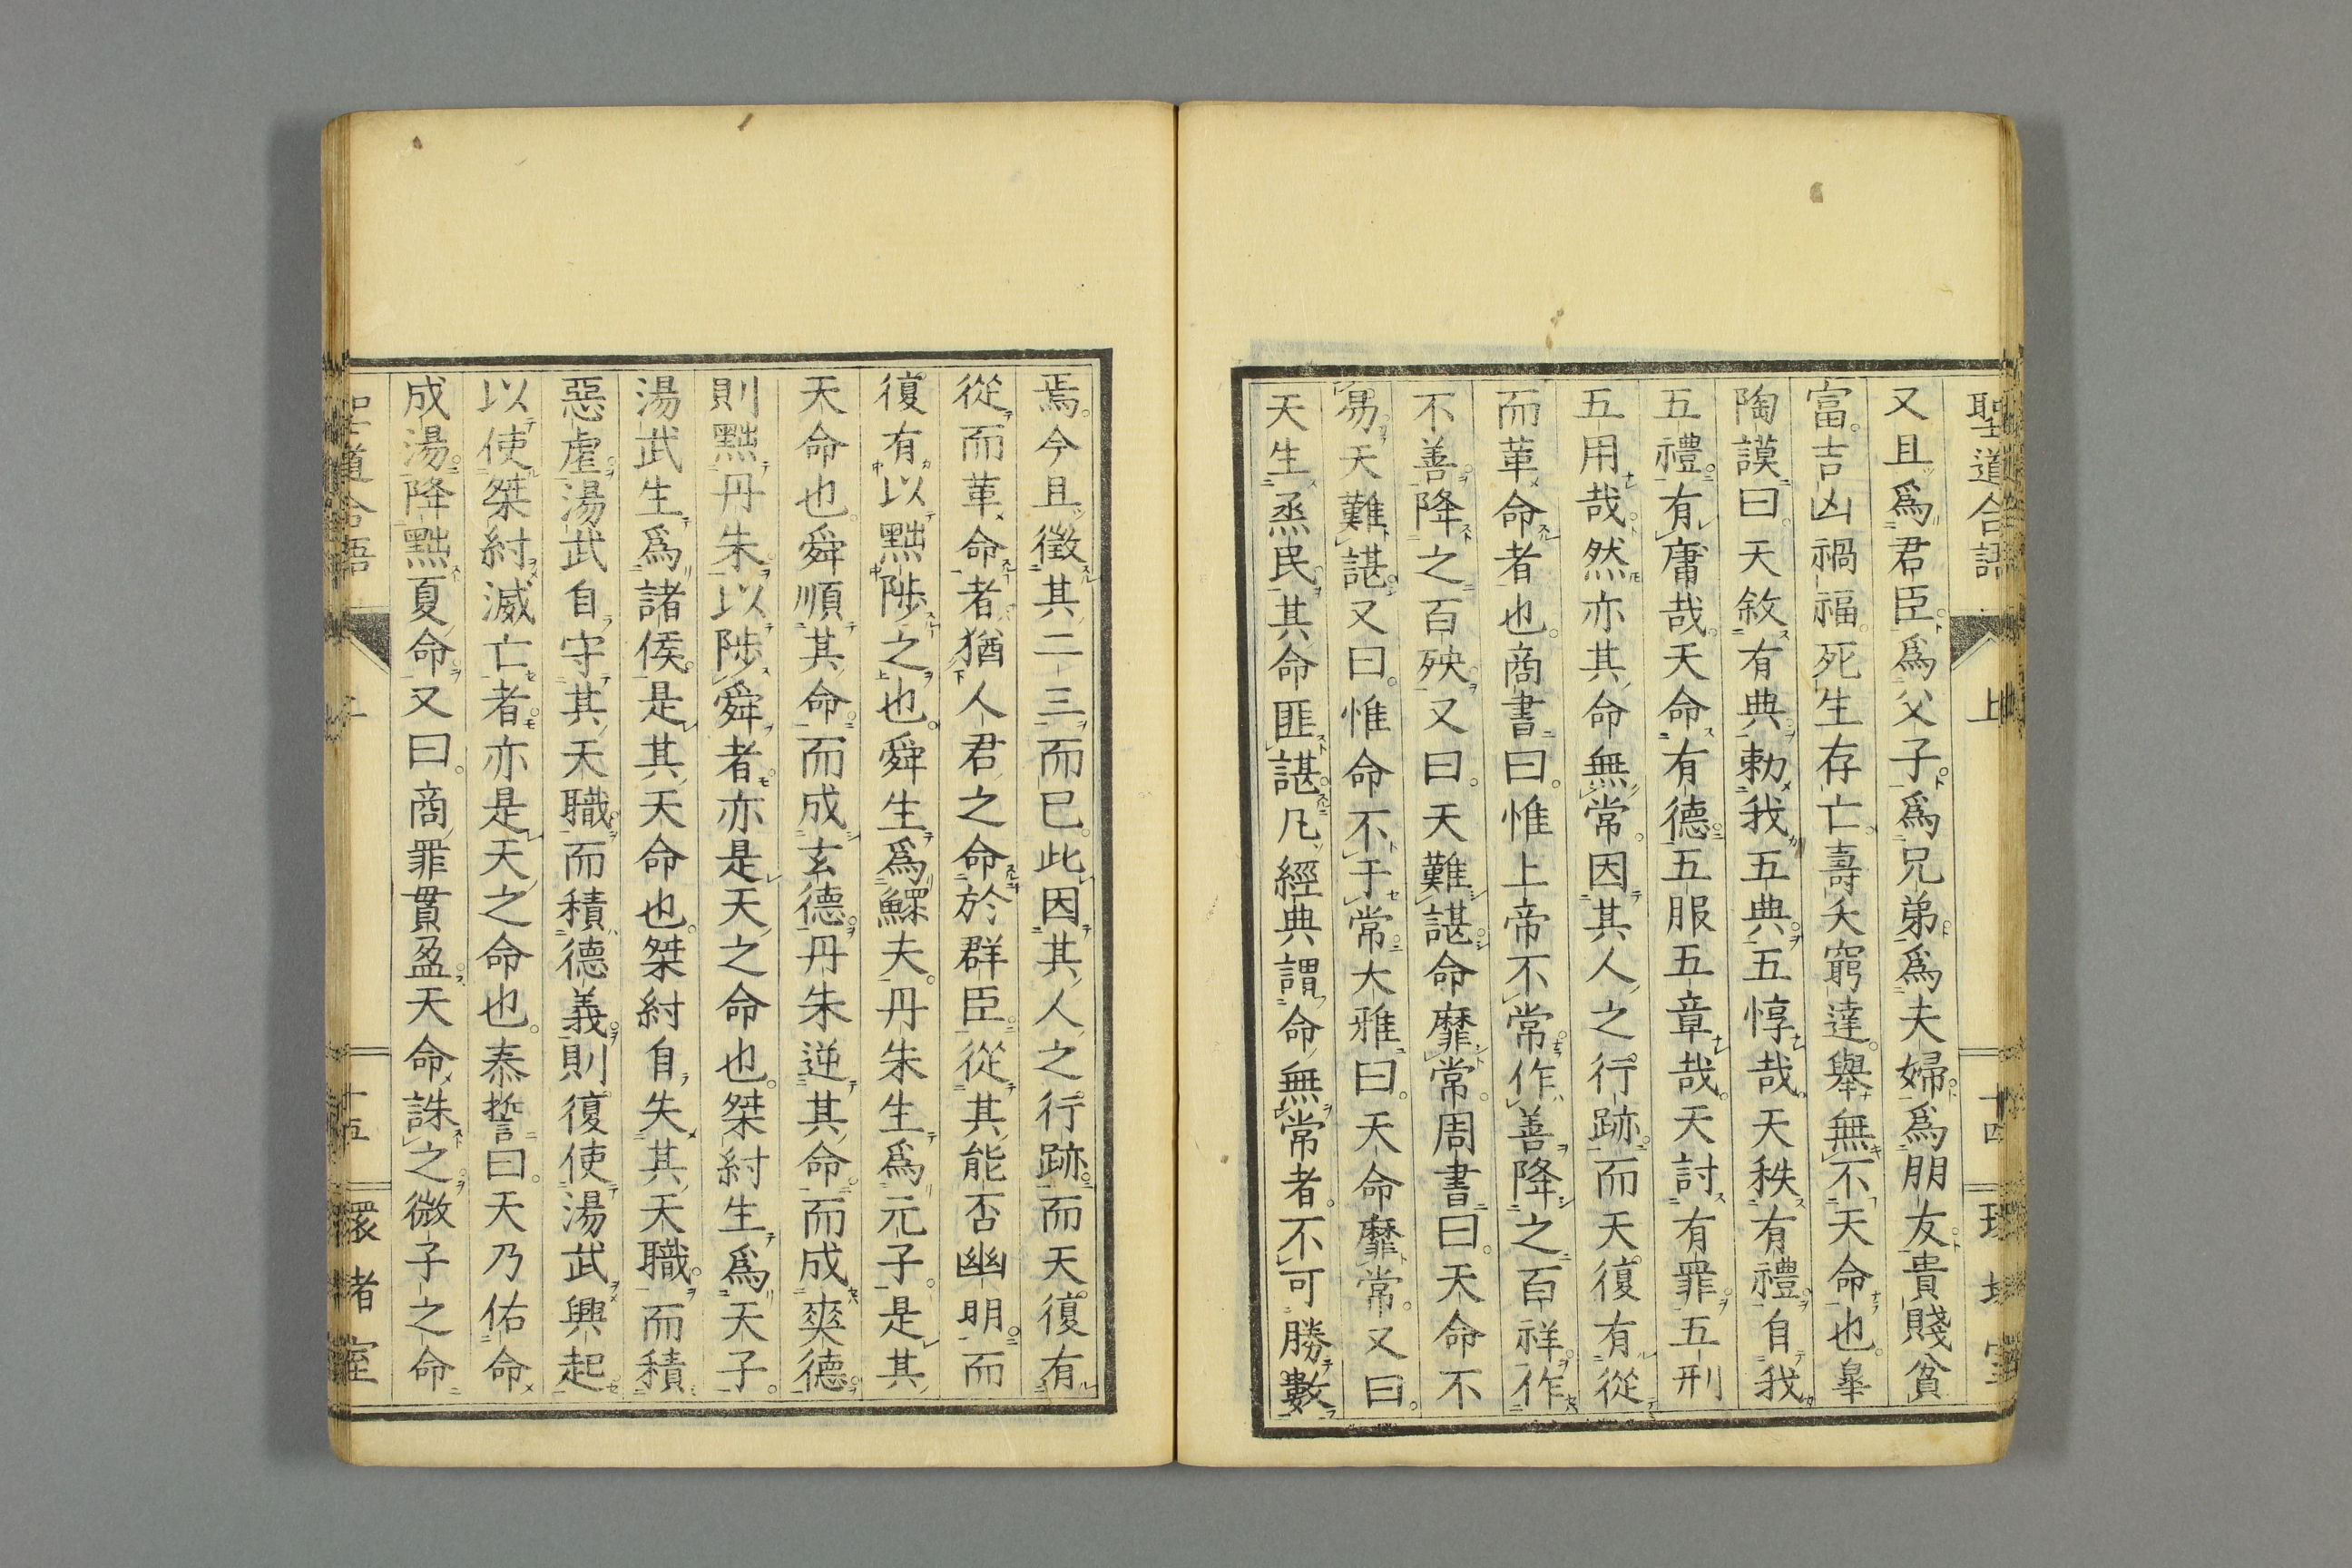 聖道合語 上 十四
又且爲君臣爲父子爲兄弟爲夫婦爲朋友貴賤貧
富。吉凶禍福。死生存亡。壽夭窮達。舉無不天命也。皐
陶謨曰。天敘有典勅我五典五惇哉。天秩有禮自我
五禮有庸哉。天命有德五服五章哉。天討有罪五刑
五用哉然亦其命無常。因其人之行跡而天復有從
而革命者也。商書曰。惟上帝不常作善降之百祥作
不善降之百殃又曰。天難諶命靡常。周書曰。天命不
易天難諶又曰。惟命不于常大雅曰。天命靡常。又曰。
天生烝民其命匪諶凡經典謂命無常者。不可勝數
焉。今且徵其二三而已。此因其人之行跡而天復有
從而革命者猶人君之命於群臣從其能否幽明而
復有以黜陟之也。舜生爲鰥夫。丹朱生爲元子。是其
天命也。舜順其命而成玄德丹朱逆其命而成爽德
則黜丹朱以陟舜者亦是天之命也。桀紂生爲天子。
湯武生爲諸侯。是其天命也。桀紂自失其天職而積
惡虐湯武自守其天職而積德義則復使湯武興起
以使桀紂滅亡者亦是天之命也。泰誓曰。天乃佑命
成湯降黜夏命又曰。商罪貫盈天命誅之微子之命
道合語 十五 環者室